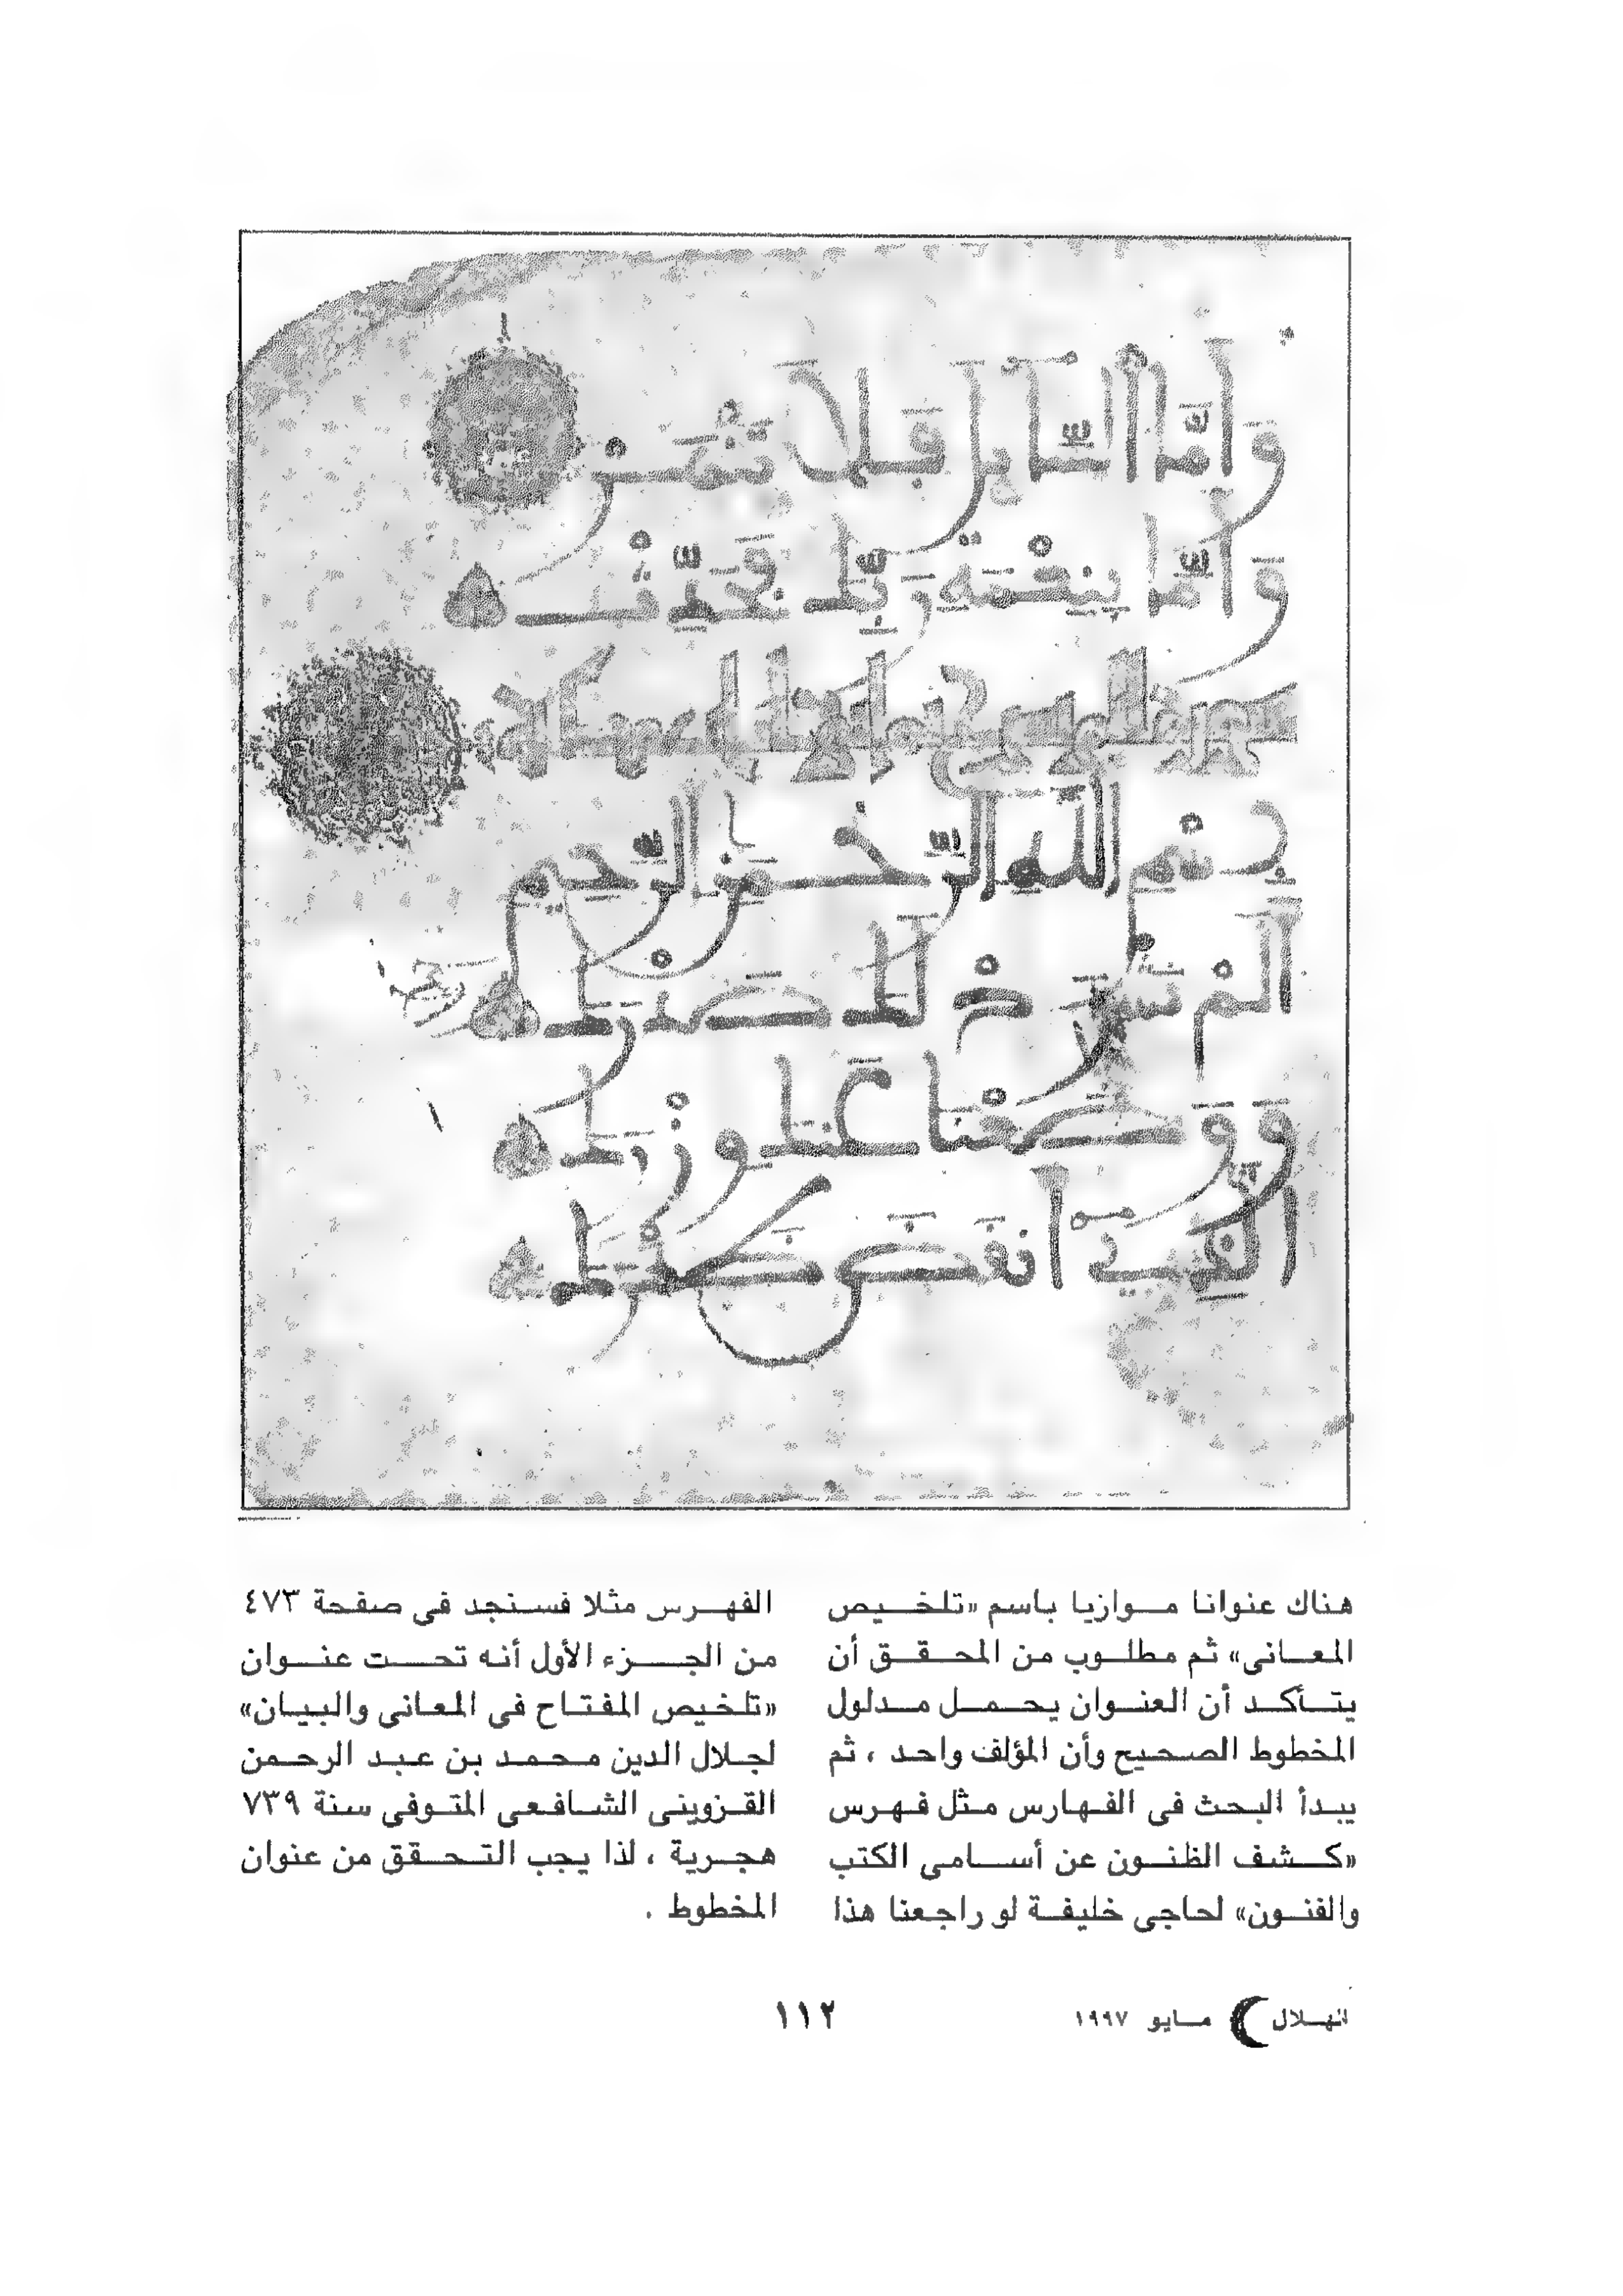 وَأَمَّا السَّآئِلَ فَلَا تَنْهَرْ
وَأَمَّا بِنِعْمَةِ رَبِّكَ فَحَدِّثْ
بِسْمِ اللَّهِ الرَّحْمَنِ الرَّحِيمِ
أَلَمْ نَشْرَحْ لَكَ صَدْرَكَ
وَوَضَعْنَا عَنكَ وِزْرَكَ
الَّذِي أَنقَضَ ظَهْرَكَ
هناك عنوانا موازيا باسم «تلخيص
المعانى» ثم مطلوب من المحقق أن
يتأكد أن العنوان يحمل مدلول
المخطوط الصحيح وأن المؤلف واحد ، ثم
يبدأ البحث فى الفهارس مثل فهرس
«كشف الظنون عن أسامى الكتب
والفنون» لحاجى خليفة لو راجعنا هذا
الفهرس مثلا فسنجد فى صفحة ٤٧٣
من الجزء الأول أنه تحت عنوان
«تلخيص المفتاح فى المعانى والبيان»
لجلال الدين محمد بن عبد الرحمن
القزوينى الشافعى المتوفى سنة ٧٣٩
هجرية ، لذا يجب التحقق من عنوان
المخطوط .
الهلال مايو ١٩٩٧
١١٢